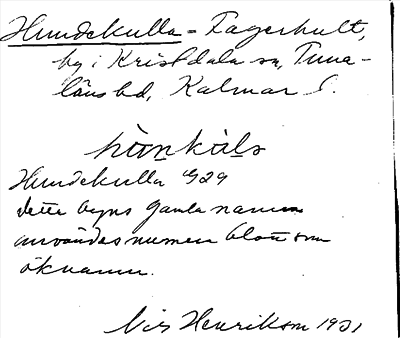 Hundekulla = Fagerhult,
by i Kristdala sn, Tuna-
läns hd, Kalmar l.
Hundekulla 929
detta byns gamla namn
användes numera blott som
öknamn.
Nils Henrikson 1931